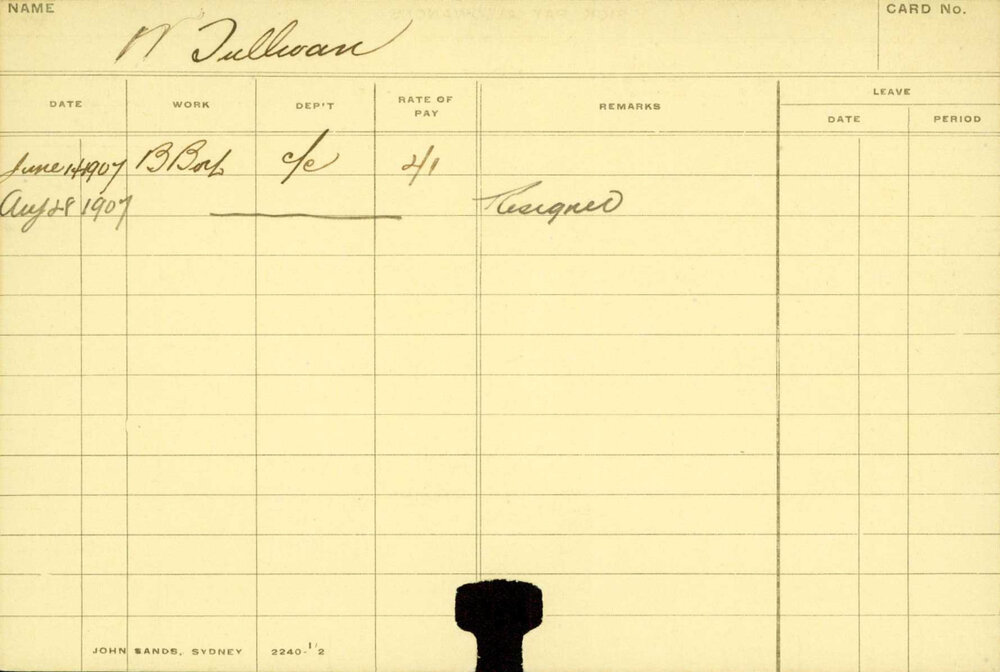 NAME
CARD No.
W Sullivan
DATE WORK DEP'T RATE OF PAY REMARKS LEAVE
DATE PERIOD
June 14 1907 B Boy c/c 2/1
Aug 28 1907 Resigned
JOHN SANDS, SYDNEY 2240-1/2